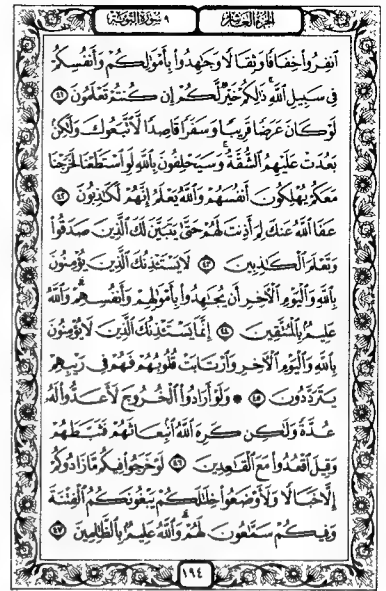 الجزء العاشر ٩ سورة التوبة
ٱنفِرُوا۟ خِفَافًا وَثِقَالًا وَجَٰهِدُوا۟ بِأَمْوَٰلِكُمْ وَأَنفُسِكُمْ
فِى سَبِيلِ ٱللَّهِ ۚ ذَٰلِكُمْ خَيْرٌ لَّكُمْ إِن كُنتُمْ تَعْلَمُونَ ٤١
لَوْ كَانَ عَرَضًا قَرِيبًا وَسَفَرًا قَاصِدًا لَّٱتَّبَعُوكَ وَلَٰكِنۢ
بَعُدَتْ عَلَيْهِمُ ٱلشُّقَّةُ ۚ وَسَيَحْلِفُونَ بِٱللَّهِ لَوِ ٱسْتَطَعْنَا لَخَرَجْنَا
مَعَكُمْ يُهْلِكُونَ أَنفُسَهُمْ وَٱللَّهُ يَعْلَمُ إِنَّهُمْ لَكَٰذِبُونَ ٤٢
عَفَا ٱللَّهُ عَنكَ لِمَ أَذِنتَ لَهُمْ حَتَّىٰ يَتَبَيَّنَ لَكَ ٱلَّذِينَ صَدَقُوا۟
وَتَعْلَمَ ٱلْكَٰذِبِينَ ٤٣ لَا يَسْتَـْٔذِنُكَ ٱلَّذِينَ يُؤْمِنُونَ
بِٱللَّهِ وَٱلْيَوْمِ ٱلْءَاخِرِ أَن يُجَٰهِدُوا۟ بِأَمْوَٰلِهِمْ وَأَنفُسِهِمْ ۗ وَٱللَّهُ
عَلِيمٌۢ بِٱلْمُتَّقِينَ ٤٤ إِنَّمَا يَسْتَـْٔذِنُكَ ٱلَّذِينَ لَا يُؤْمِنُونَ
بِٱللَّهِ وَٱلْيَوْمِ ٱلْءَاخِرِ وَٱرْتَابَتْ قُلُوبُهُمْ فَهُمْ فِى رَيْبِهِمْ
يَتَرَدَّدُونَ ٤٥ ۞ وَلَوْ أَرَادُوا۟ ٱلْخُرُوجَ لَأَعَدُّوا۟ لَهُۥ
عُدَّةً وَلَٰكِن كَرِهَ ٱللَّهُ ٱنۢبِعَاثَهُمْ فَثَبَّطَهُمْ
وَقِيلَ ٱقْعُدُوا۟ مَعَ ٱلْقَٰعِدِينَ ٤٦ لَوْ خَرَجُوا۟ فِيكُم مَّا زَادُوكُمْ
إِلَّا خَبَالًا وَلَأَوْضَعُوا۟ خِلَٰلَكُمْ يَبْغُونَكُمُ ٱلْفِتْنَةَ
وَفِيكُمْ سَمَّٰعُونَ لَهُمْ ۗ وَٱللَّهُ عَلِيمٌۢ بِٱلظَّٰلِمِينَ ٤٧
١٩٤